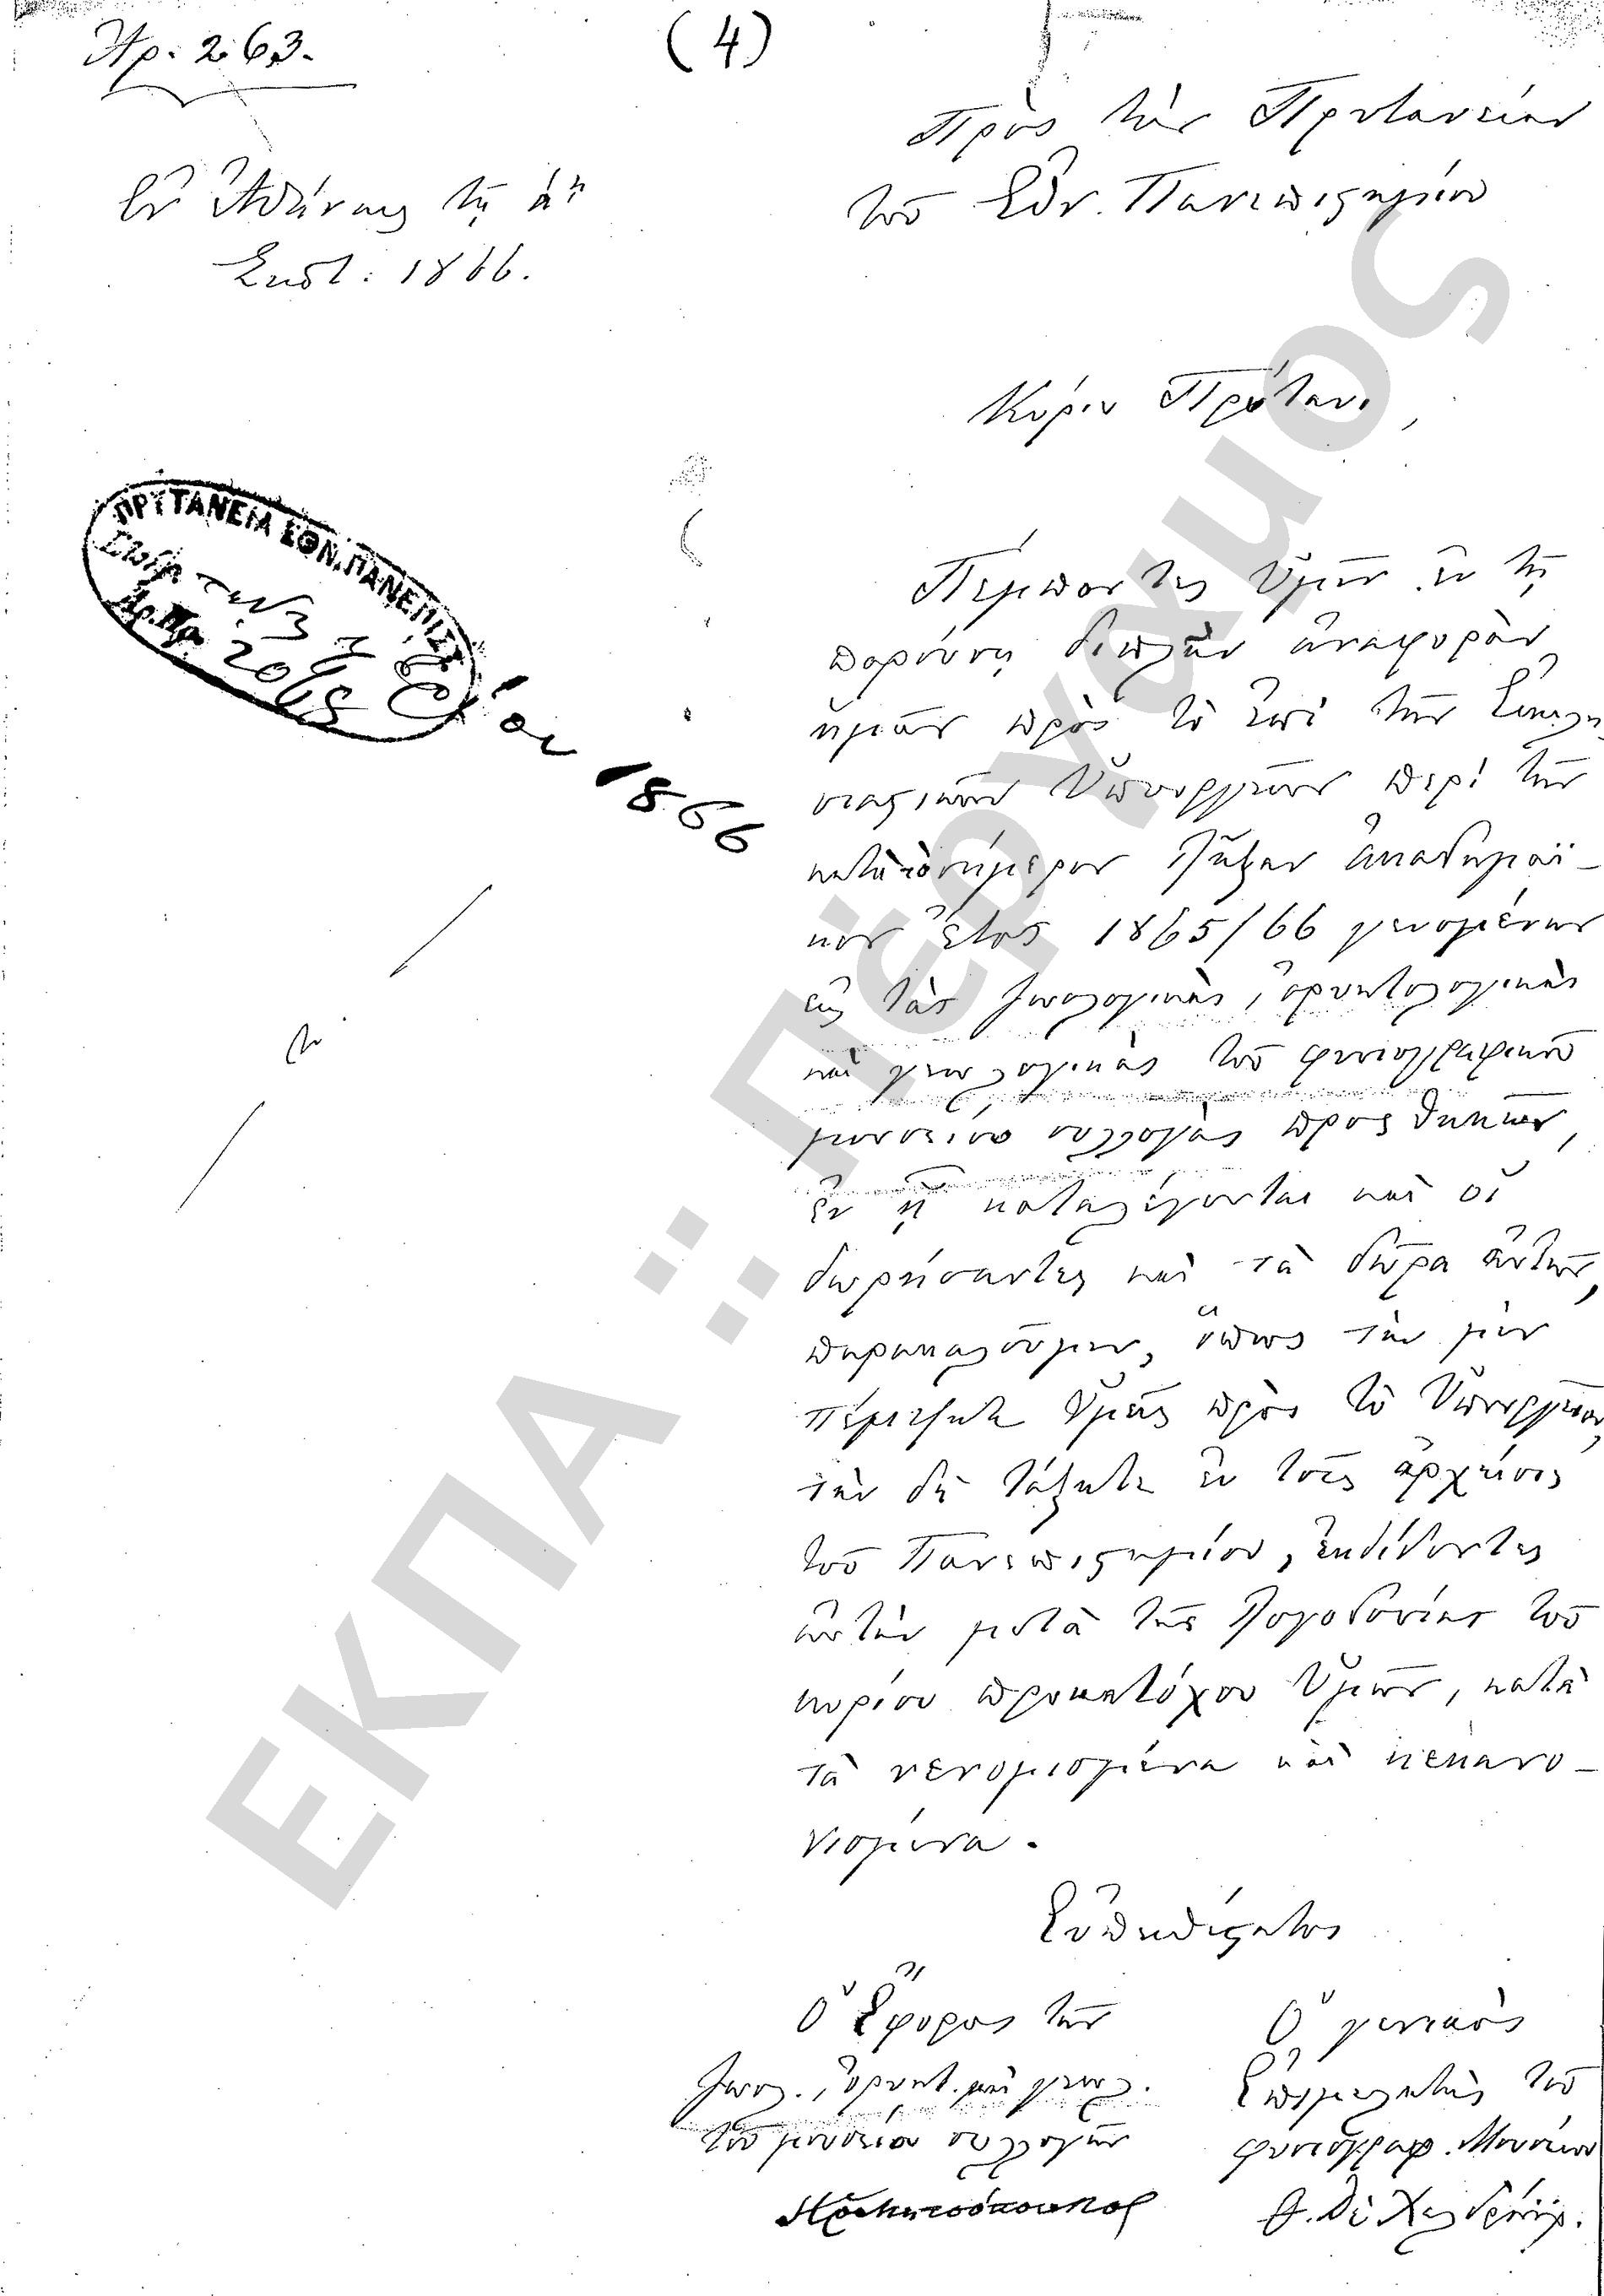 Ἀρ. 263.
(4)
Πρὸς τὴν Πρυτανείαν
τοῦ Ἐθν. Πανεπιστημίου
Ἐν Ἀθήναις τῇ
Σεπτ: 1866.
Κύριε Πρύτανι,
ΠΡΥΤΑΝΕΙΑ ΕΘΝ. ΠΑΝΕΠΙΣΤ
Ἀρ. Πρ.
1866
Πέμποντες Ὑμῖν ἐν τῇ
παρούσῃ διπλῆν ἀναφορὰν
ἡμῶν πρὸς τὸ ἐπὶ τῶν Ἐκκλη
σιαστικῶν Ὑπουργεῖον περὶ τῶν
κατὰ τὸ σήμερον λῆξαν ἀκαδημαϊ-
κὸν ἔτος 1865/66 γενομένων
εἰς τὰς ζωολογικὰς, ὀρυκτολογικὰς
καὶ γεωλογικὰς τοῦ φυσιογραφικοῦ
μουσείου συλλογὰς προσθηκῶν,
ἐν ᾗ καταλέγονται καὶ οἱ
δωρήσαντες καὶ τὰ δῶρα αὐτῶν,
παρακαλοῦμεν, ὅπως τὴν μὲν
πέμψητε Ὑμεῖς πρὸς τὸ Ὑπουργεῖον,
τὴν δὲ τάξητε ἐν τοῖς ἀρχείοις
τοῦ Πανεπιστημίου, ἐκδίδοντες
αὐτὴν μετὰ τῆς λογοδοσίας τοῦ
κυρίου προκατόχου Ὑμῶν, κατὰ
τὰ νενομισμένα καὶ κεκανο-
νισμένα.
Εὐπειθέστατος
Ὁ Ἔφορος τῶν
ζωολ., ὀρυκτ. καὶ γεωλ.
τοῦ μουσείου συλλογῶν
Ὁ γενικὸς
Ἐπιμελητὴς τοῦ
φυσιογραφ. Μουσείου
Θ. Δὲ Χελδράιχ.
ΕΚΠΑ : Πέργαμος